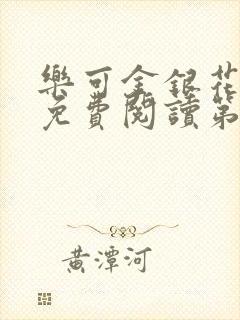 樂可金銀花
免費閱讀第
黃潭河